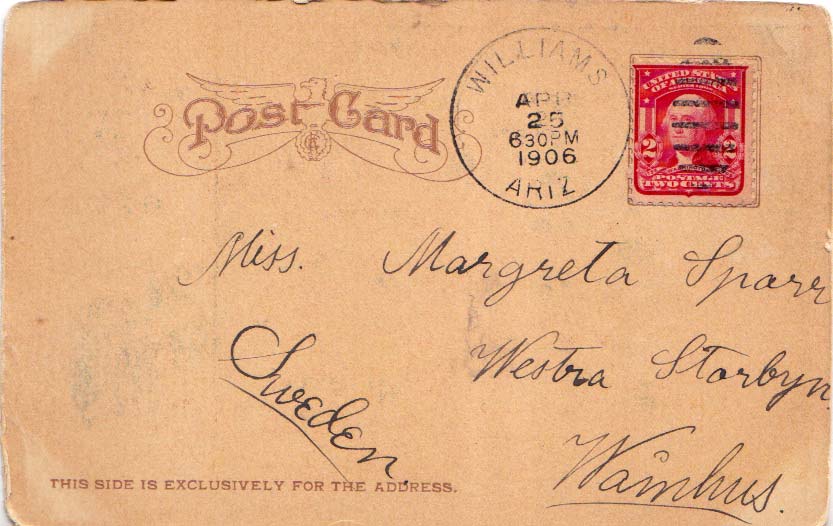 Post Card
WILLIAMS
APR
25
630PM
1906
ARIZ
UNITED STATES
OF AMERICA
2 2
POSTAGE
TWO CENTS
Miss. Margreta Sparr
Westra Storbyn
Sweden.
Wämhus.
THIS SIDE IS EXCLUSIVELY FOR THE ADDRESS.